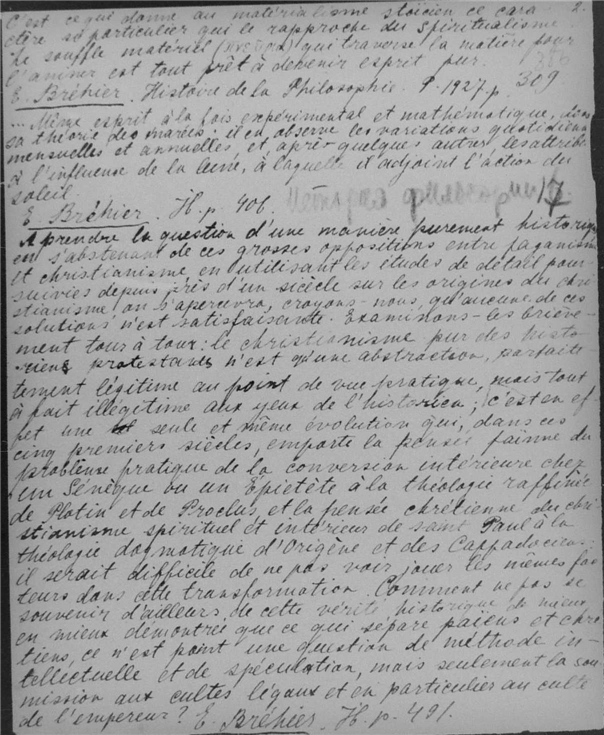 C'est ce qui donne au matérialisme stoïcien ce cara 2.
ctère si particulier qui le rapproche du spiritualisme
Le souffle matériel (πνεῦμα) qui traverse la matière pour
l'animer est tout prêt à devenir esprit pur.
E. Bréhier. Histoire de la Philosophie. P. 1927. p. 309
... Même esprit à la fois expérimental et mathématique, dans
sa théorie des marées; il en observe les variations quotidien
mensuelles et annuelles et, après quelques autres, les attribue
à l'influence de la lune, à laquelle il adjoint l'action du
soleil.
E. Bréhier. H. p. 406. История философии
A prendre la question d'une manière purement historique
en s'abstenant de ces grosses oppositions entre paganisme
et christianisme, en utilisant les études de détail pour-
suivies depuis près d'un siècle sur les origines du chri
stianisme, on s'apercevra, croyons-nous, qu'aucune de ces
solutions n'est satisfaisante. Examinons-les briève-
ment tous à tour: le christianisme pur des histo-
riens protestants n'est qu'une abstraction, parfaite-
tement légitime au point de vue pratique, mais tout
à fait illégitime aux yeux de l'historien; c'est en ef-
fet une seule et même évolution qui, dans ces
cinq premiers siècles, emporte la pensée païenne du
problème pratique de la conversion intérieure chez
un Sénèque ou un Epictète à la théologie raffinée
de Plotin et de Proclus, et la pensée chrétienne du chri
stianisme spirituel et intérieur de saint Paul à la
théologie dogmatique d'Origène et des Cappadociens:
il serait difficile de ne pas voir jouer les mêmes fac
teurs dans cette transformation. Comment ne pas se
souvenir d'ailleurs, de cette vérité historique de mieux
en mieux démontrée que ce qui sépare païens et chré
tiens, ce n'est point une question de méthode in-
tellectuelle et de spéculation, mais seulement la sou
mission aux cultes légaux et en particulier au culte
de l'empereur? E. Bréhier. H. p. 491.